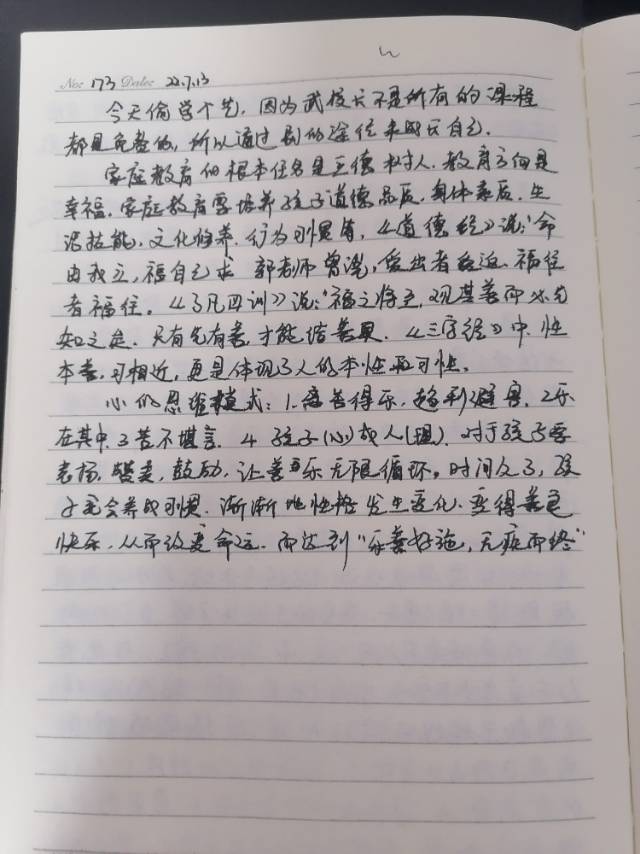 No: 173 Date: 22.7.13
今天偷学个艺，因为武校长不是所有的课程
都是免费的，所以通过别的途径来成长自己.
家庭教育的根本任务是立德树人.教育方向是
幸福.家庭教育要培养孩子道德品质.身体素质.生
活技能，文化修养.行为习惯等，《道德经》说:"命
由我立，福自己求 郭老师曾说，
者福往。《了凡四训》说:"福之将至,观其善而必先
知之矣.只有先有善,才能结善果.《三字经》中.性
本善,习相近,更是体现了人的本性和习性。
心的思维模式:1.为善得乐.趋利避害.2乐
在其中.3苦不堪言.4 孩子(心)成人(理).对于孩子要
表扬.赞美,鼓励,让善乐无限循环。时间久了,孩
子就会养成习惯.渐渐地性格发生变化.变得善良
快乐,从而改变命运.而达到"乐善好施,无疾而终"